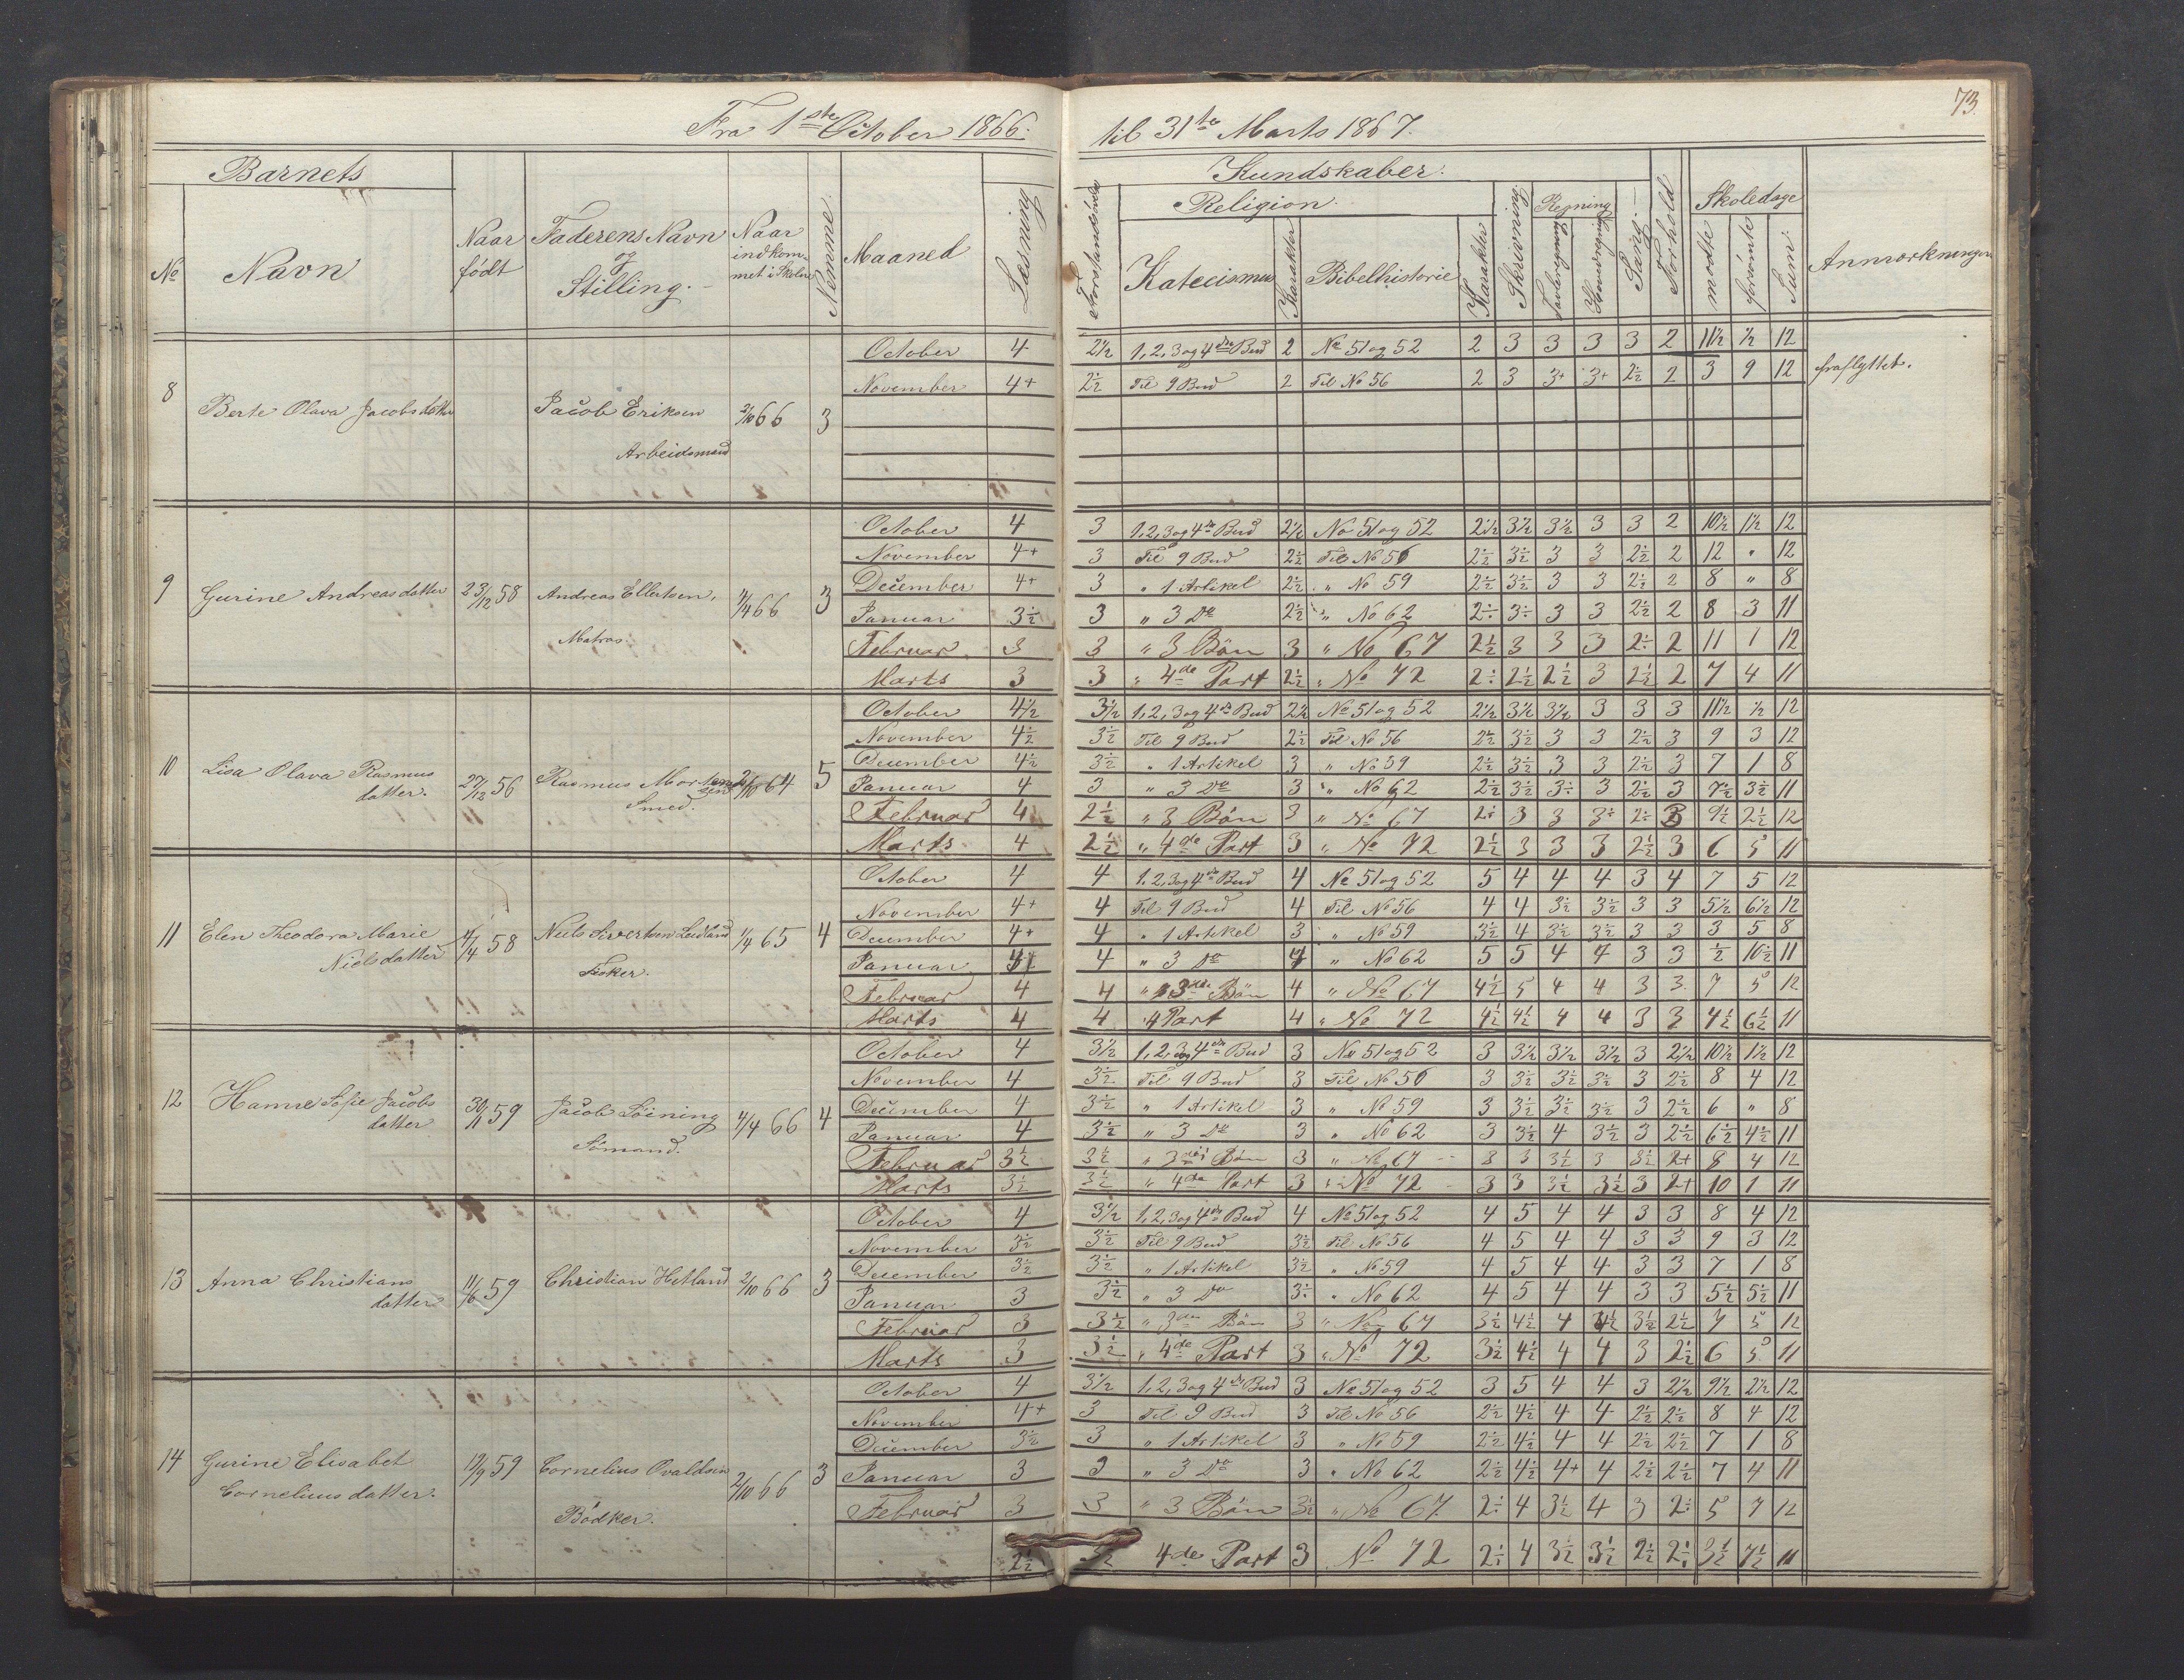 73.
Fra 1ste October 1866. til 31te Marts 1867.
Barnets
Kundskaber.
Religion.
Regning
Skoledage
No Navn Naar født Faderens Navn og Stilling. Naar indkommet i Skolen Nemme. Maaned Læsning
Katecismus Karakter Bibelhistorie Karakter Skrivning Tavleregning Hovedregning Sang. Forhold mødte forsømte Sum. Anmærkninger
8 Berte Olava Jacobsdatter Jacob Eriksen Arbeidsmand 2/10 66 3
October 4 2½ 1, 2, 3 og 4de Bud 2 No 51 og 52 2 3 3 3 3 2 11½ ½ 12
November 4+ 2½ Til 9 Bud 2 Til No 56 2 3 3+ 3+ 2½ 2 3 9 12 fraflyttet.
9 Gurine Andreasdatter 23/12 58 Andreas Ellertsen, Matros. 66 3
October 4 3 1, 2, 3 og 4de Bud 2½ No 51 og 52 2½ 3½ 3½ 3 3 2 10½ 1½ 12
November 4+ 3 Til 9 Bud 2½ Til No 56 2½ 3½ 3 3 2½ 2 12 " 12
December 4+ 3 " 1 Artikel 2½ " No 59 2½ 3½ 3 3 2½ 2 8 " 8
Januar 3½ 3 " 3 Do 2½ " No 62 2÷ 3÷ 3 3 2½ 2 8 3 11
Februar 3 3 " 3 Bön 3 " No 67 2½ 3 3 3 2÷ 2 11 1 12
Marts 3 3 " 4de Part 2½ " No 72 2÷ 2½ 2½ 3 2½ 2 7 4 11
10 Lisa Olava Rasmusdatter. 27/12 56 Rasmus Smed. 64 5
October 4½ 3½ 1, 2, 3 og 4de Bud 2½ No 51 og 52 2½ 3½ 3½ 3 3 3 11½ ½ 12
November 4½ 3½ Til 9 Bud 2½ Til No 56 2½ 3½ 3 3 2½ 3 9 3 12
December 4½ 3½ " 1 Artikel 3 " No 59 2½ 3½ 3 3 2½ 3 7 1 8
Januar 4 3 " 3 Do 3 " No 62 2½ 3½ 3÷ 3 2½ 3 7½ 3½ 11
Februar 4 2½ " 3 Bön 3 " No 67 2÷ 3 3 3÷ 2÷ 3 9½ 2½ 12
Marts 4 2½ " 4de Part 3 " No 72 2½ 3 3 3 2½ 3 6 5 11
11 Elen Theodora Marie Nielsdatter 58 Niels Sivertsen Fisker. 1/4 65 4
October 4 4 1, 2, 3 og 4de Bud 4 No 51 og 52 5 4 4 4 3 4 7 5 12
November 4+ 4 Til 9 Bud 4 Til No 56 4 4 3½ 3½ 3 3 5½ 6½ 12
December 4+ 4 " 1 Artikel 3 " No 59 3½ 4 3½ 3½ 3 3 3 5 8
Januar 4 " 3 Do 4 " No 62 5 5 4 4 3 3 ½ 10½ 11
Februar 4 4 " 3de Bön 4 " No 67 4½ 5 4 4 3 3 7 5 12
Marts 4 4 " 4 Part 4 " No 72 4½ 4½ 4 4 3 3 4½ 6½ 11
12 Hanne Sofie Jacobsdatter 30/11 59 Jacob Sömand. 66 4
October 4 3½ 1, 2, 3 og 4de Bud 3 No 51 og 52 3 3½ 3½ 3½ 3 2½ 10½ 1½ 12
November 4 3½ Til 9 Bud 3 Til No 56 3 3½ 3½ 3½ 3 2½ 8 4 12
December 4 3½ " 1 Artikel 3 " No 59 3 3½ 3½ 3½ 3 2½ 6 " 8
Januar 4 3½ " 3 Do 3 " No 62 3 3½ 4 3½ 3 2½ 6½ 4½ 11
Februar 3½ 3½ " 3die Bön 3 " No 67 3 3 3½ 3 3½ 2+ 8 4 12
Marts 3½ 3½ " 4de Part 3 " No 72 3 3 3½ 3½ 3 2+ 10 1 11
13 Anna Christiansdatter 11/6 59 Christian Hetland 2/10 66 3
October 4 3½ 1, 2, 3 og 4de Bud 4 No 51 og 52 4 5 4 4 3 3 8 4 12
November 3½ 3½ Til 9 Bud 3½ Til No 56 4 5 4 4 3 3 9 3 12
December 3½ 3½ " 1 Artikel 3½ " No 59 4 5 4 4 3 3 7 1 8
Januar 3 3½ " 3 Do 3÷ " No 62 4 5 4 4 3 3 5½ 5½ 11
Februar 3 3½ " 3die Bön 3 " No 67 3½ 4½ 4 4½ 3½ 2½ 7 5 12
Marts 3 3½ " 4de Part 3 " No 72 3½ 4½ 4 4 3 2½ 6 5 11
14 Gurine Elisabet Corneliusdatter. 19/9 59 Cornelius Ovaldsen Bödker. 2/10 66 3
October 4 3½ 1, 2, 3 og 4de Bud 3 No 51 og 52 3 5 4 4 3 2½ 9½ 2½ 12
November 4+ 3 Til 9 Bud 3 Til No 56 2½ 4½ 4 4 2½ 2½ 8 4 12
December 3½ 3 " 1 Artikel 3 " No 59 2½ 4½ 4 4 2½ 2½ 7 1 8
Januar 3 3 " 3 Do 3 " No 62 2½ 4½ 4+ 4 2½ 2½ 7 4 11
Februar 3 3 " 3 Bön 3½ " No 67. 2÷ 4 3½ 4 3 2÷ 5 7 12
2½ 4de Part 3 No 72 2÷ 4 3½ 3½ 2½ 2÷ 3½ 7½ 11